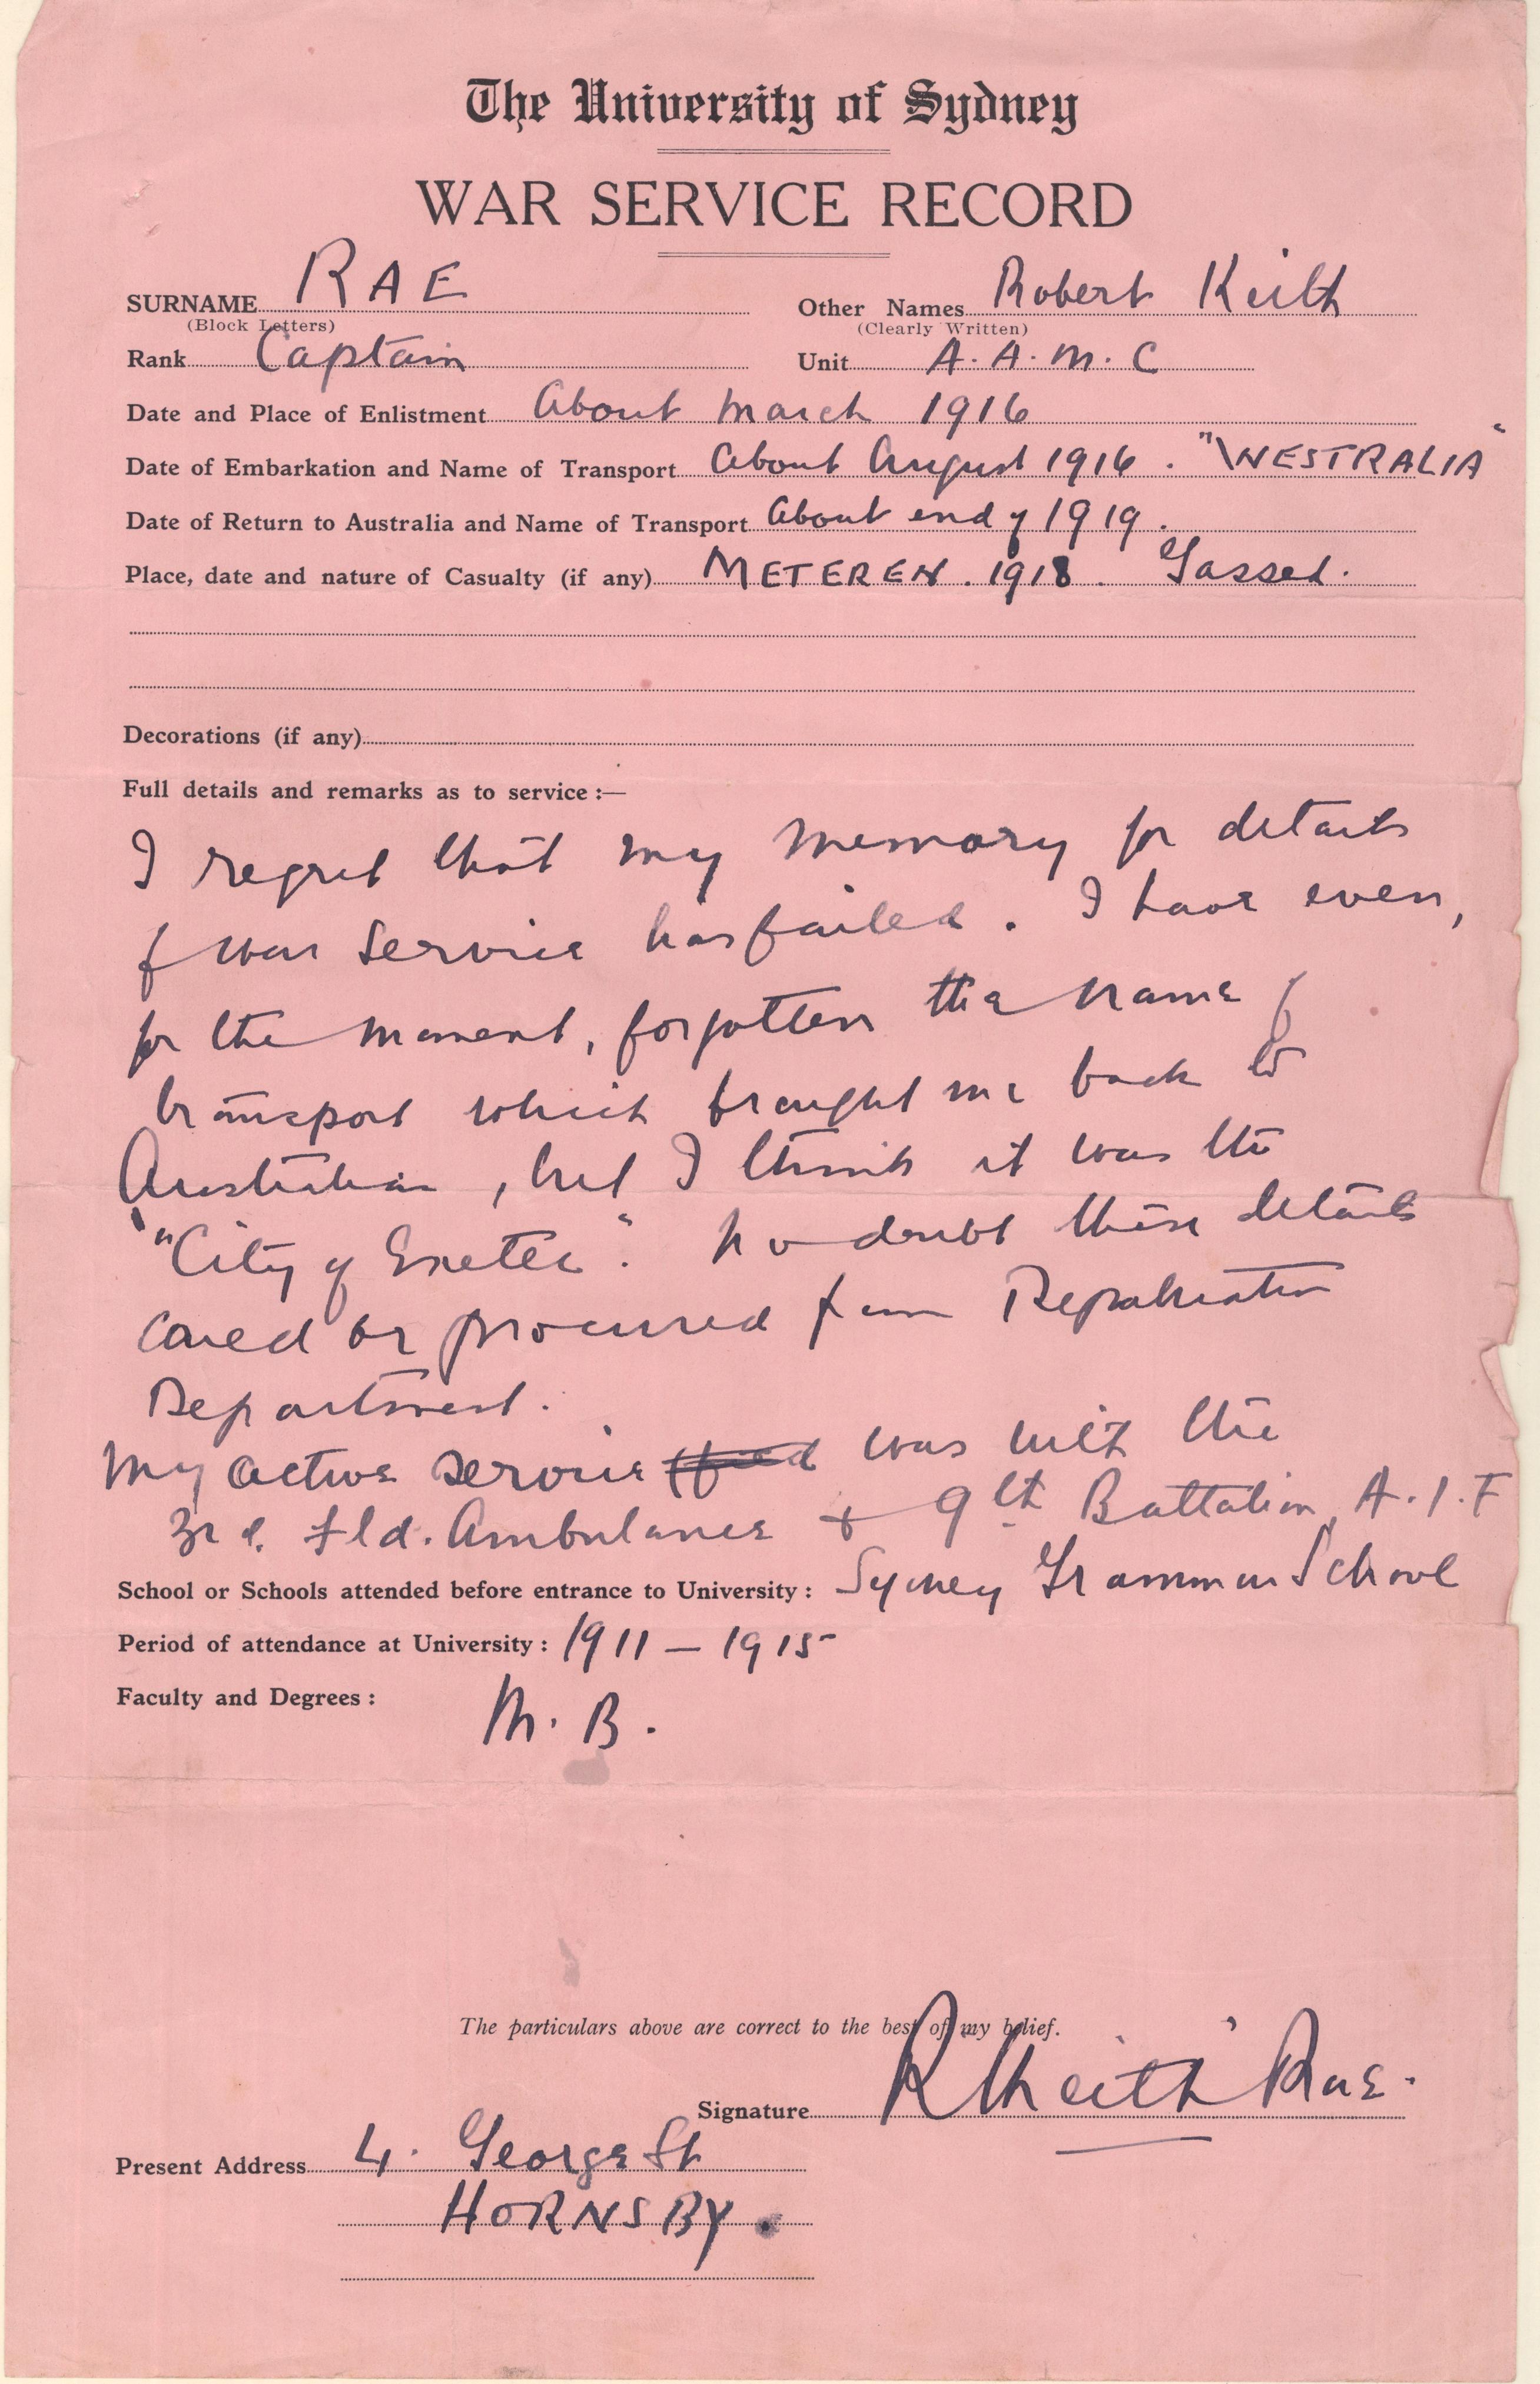 The University of Sydney
WAR SERVICE RECORD
SURNAME RAE Other Names Robert Keith
(Block Letters) (Clearly Written)
Rank Captain Unit A.A.M.C
Date and Place of Enlistment About March 1916
Date of Embarkation and Name of Transport About August 1916. "WESTRALIA"
Date of Return to Australia and Name of Transport About end of 1919.
Place, date and nature of Casualty (if any) METEREN. 1918. Gassed.
Decorations (if any)
Full details and remarks as to service :—
I regret that my memory for details
of war service has failed. I have even,
for the moment, forgotten the name of
transport which brought me back to
Australia, but I think it was the
"City of Exeter". No doubt these details
could be procured from Repatriation
Department.
My active service was with the
3rd. Fld. Ambulance + 9th Battalion, A.I.F
School or Schools attended before entrance to University : Sydney Grammar School
Period of attendance at University : 1911 — 1915
Faculty and Degrees :
M. B.
The particulars above are correct to the best of my belief.
Signature R Keith Rae.
Present Address 4. George St
HORNSBY.